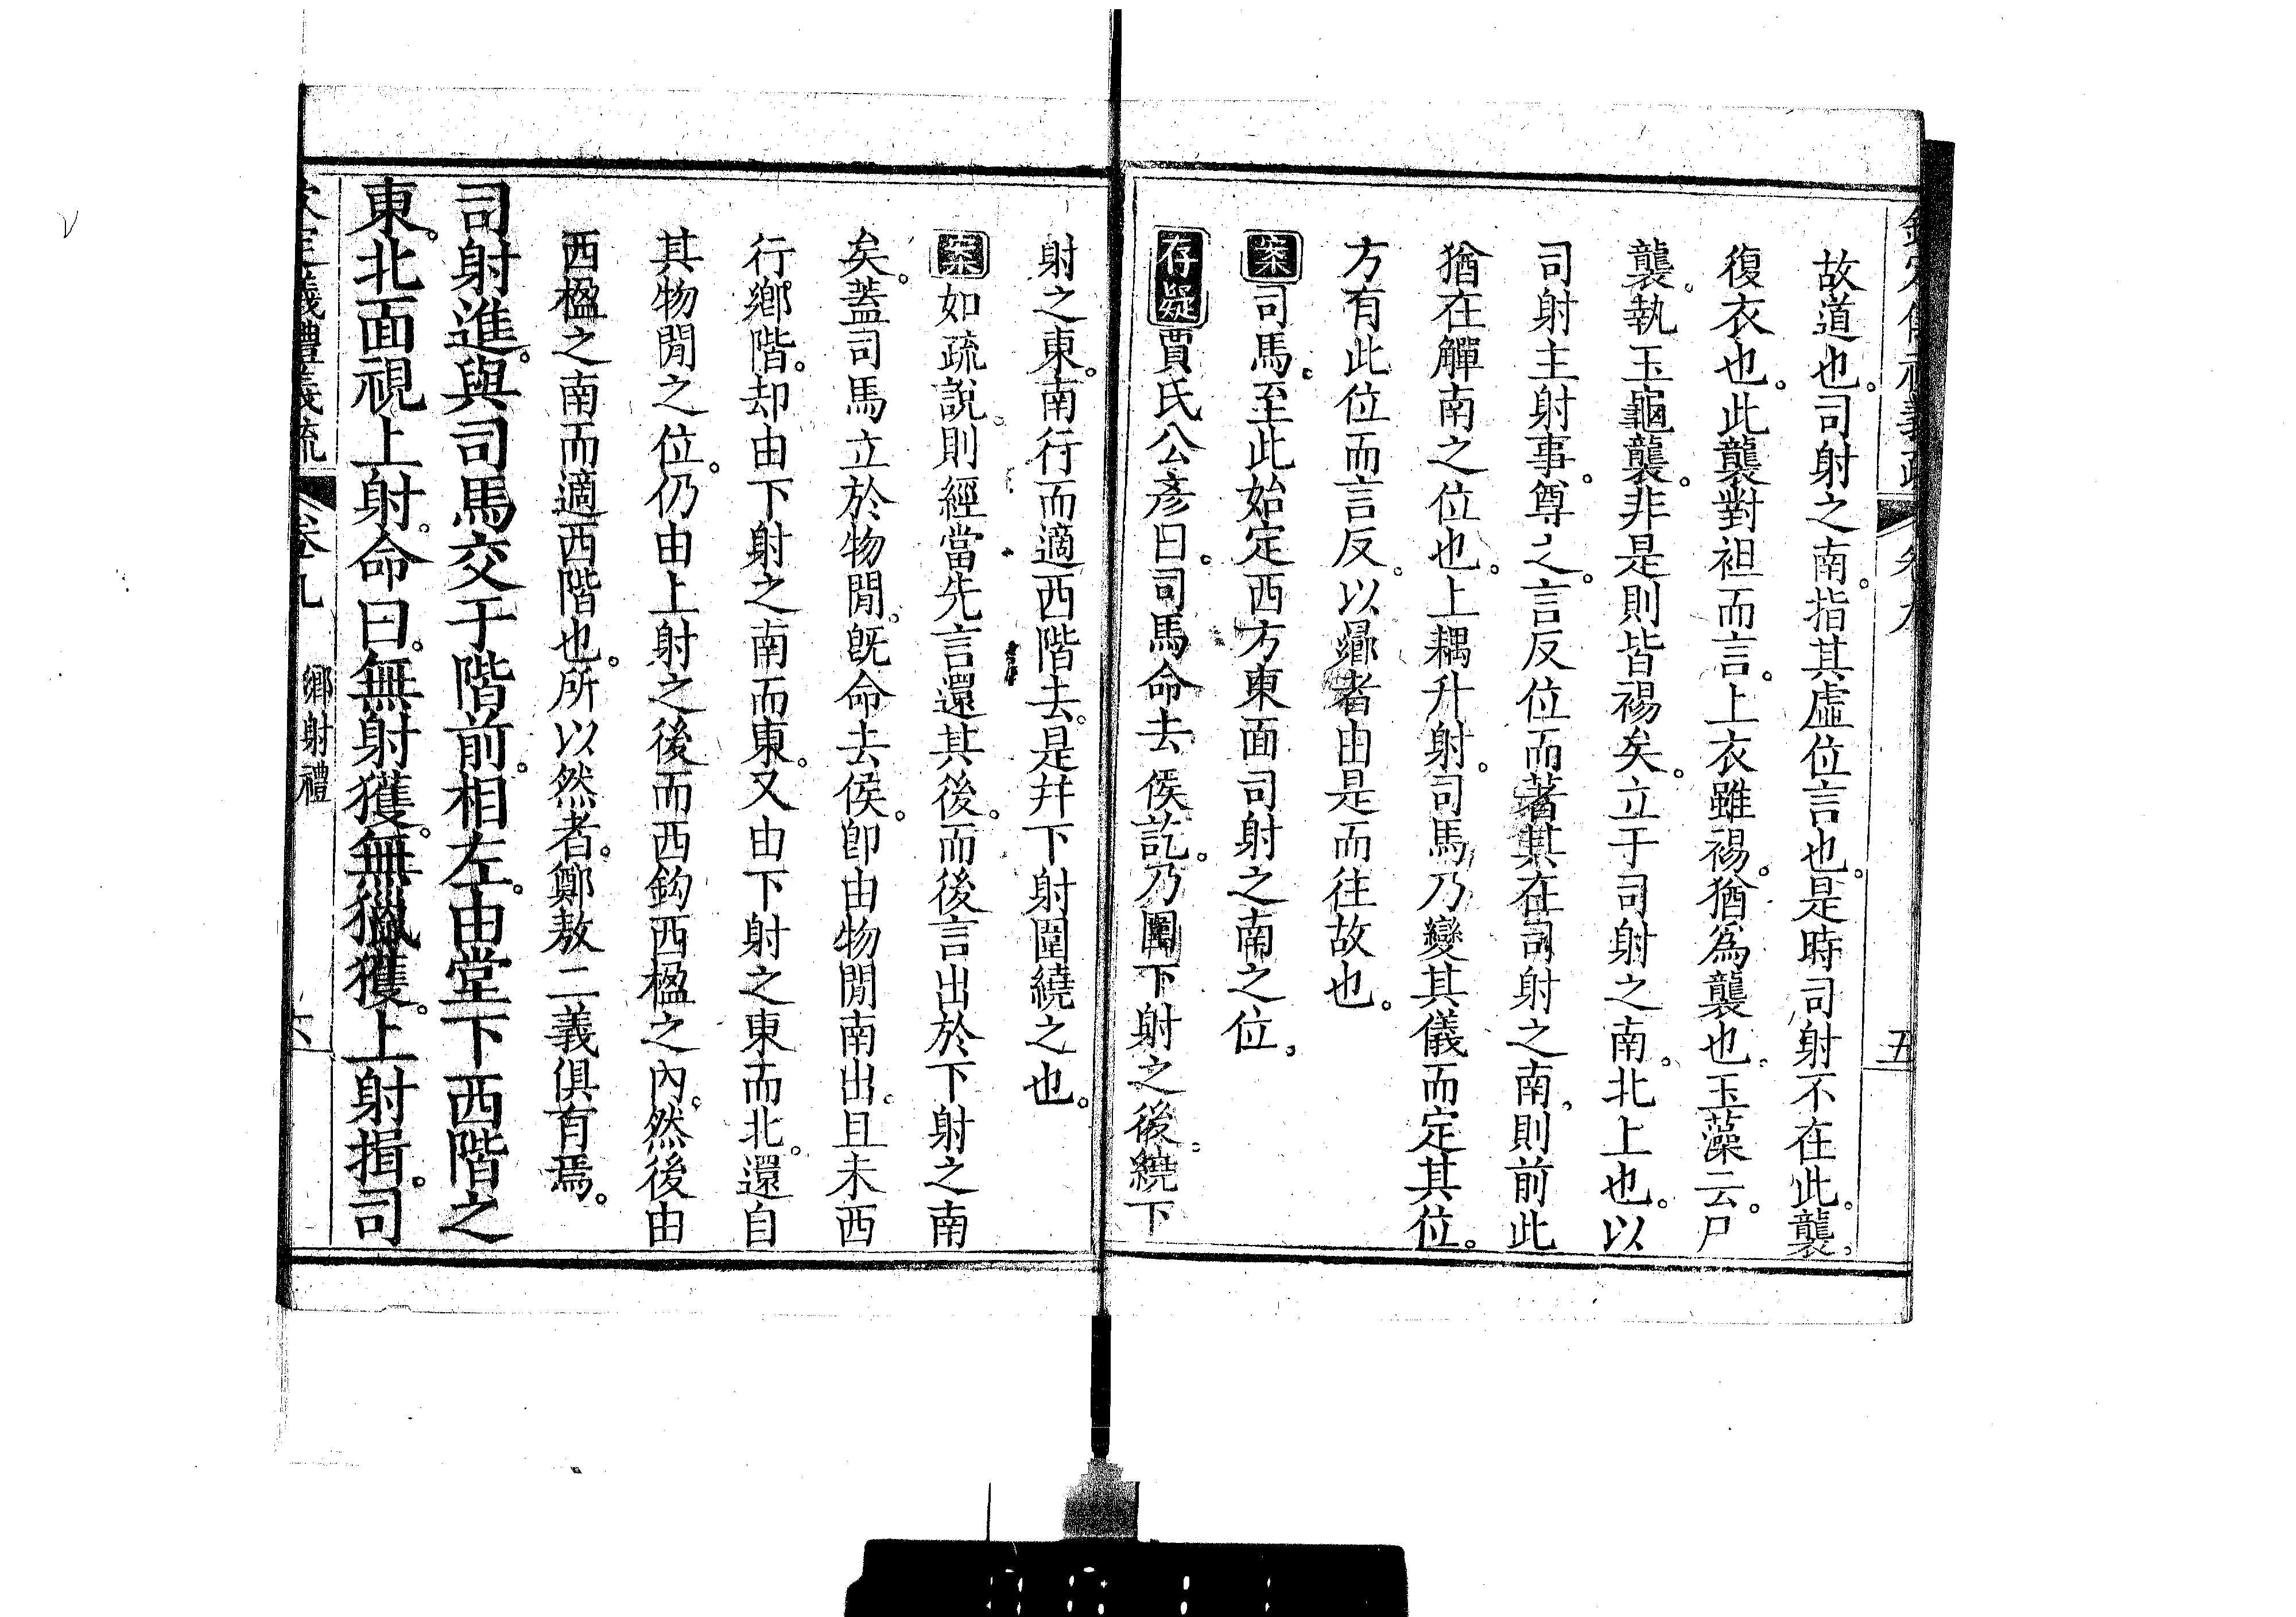 故道也。司射之南。指其虛位言也。是時司射不在此。襲。
復衣也。此襲對袒而言。上衣雖裼。猶為襲也。玉藻云。尸
襲。執玉龜襲。非是則皆裼矣。立于司射之南。北上也。以
司射主射事。尊之。言反位而著其在司射之南。則前此
猶在觶南之位也。上耦升射。司馬乃變其儀而定其位。
方有此位而言反。以曏者由是而往故也。
案司馬。至此始定西方東面司射之南之位。
存疑賈氏公彥曰。司馬命去侯訖。乃圍下射之後。繞下
射之東。南行而適西階去。是幷下射圍繞之也。
案如疏說。則經當先言還其後。而後言出於下射之南
矣。蓋司馬立於物閒。旣命去侯。卽由物閒南出。且未西
行鄉階。却由下射之南而東。又由下射之東而北。還自
其物閒之位。仍由上射之後而西鉤西楹之內。然後由
西楹之南而適西階也。所以然者。鄭敖二義俱有焉。
司射進。與司馬交于階前。相左。由堂下西階之
東。北面視上射。命曰。無射獲。無獵獲。上射揖。司
卷九 鄉射禮